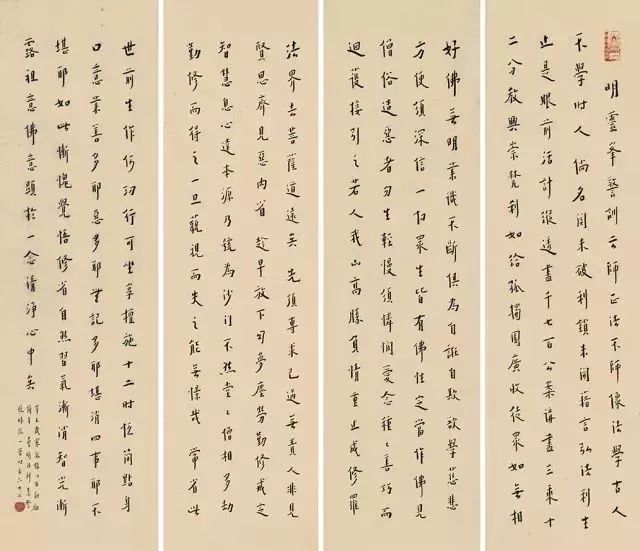 明靈峯警訓云師正法不師像法學古人
不學时人倘名關未破利鎖未開藉言弘法利生
止是眼前活計縱透盡千七百公案講盡三乘十
二分教興崇梵刹如給孤獨園廣收徒眾如無相
好佛無明業識不斷俱為自誑自欺欲學慈悲
方便須深信一切眾生皆有佛性定當作佛見
僧俗造惡者勿生輕慢須憐憫愛念種々善巧而
迴護接引之若人我山高勝負情重止成修羅
法界去菩薩道遠矣先須專求己過毋責人非見
賢思齊見惡內省趁早放下幻夢塵勞勤修戒定
智慧息心達本源乃號為沙門不然堂々僧相多劫
勤修而得之一旦藐視而失之能無懍哉常省此
世前生作何功行可坐享檀施十二时恆簡點身
口意業善多耶惡多耶無記多耶堪消四事耶不
堪耶如此慚愧覺悟修省自然習氣漸消智光漸
露祖意佛意顯於一念清淨心中矣